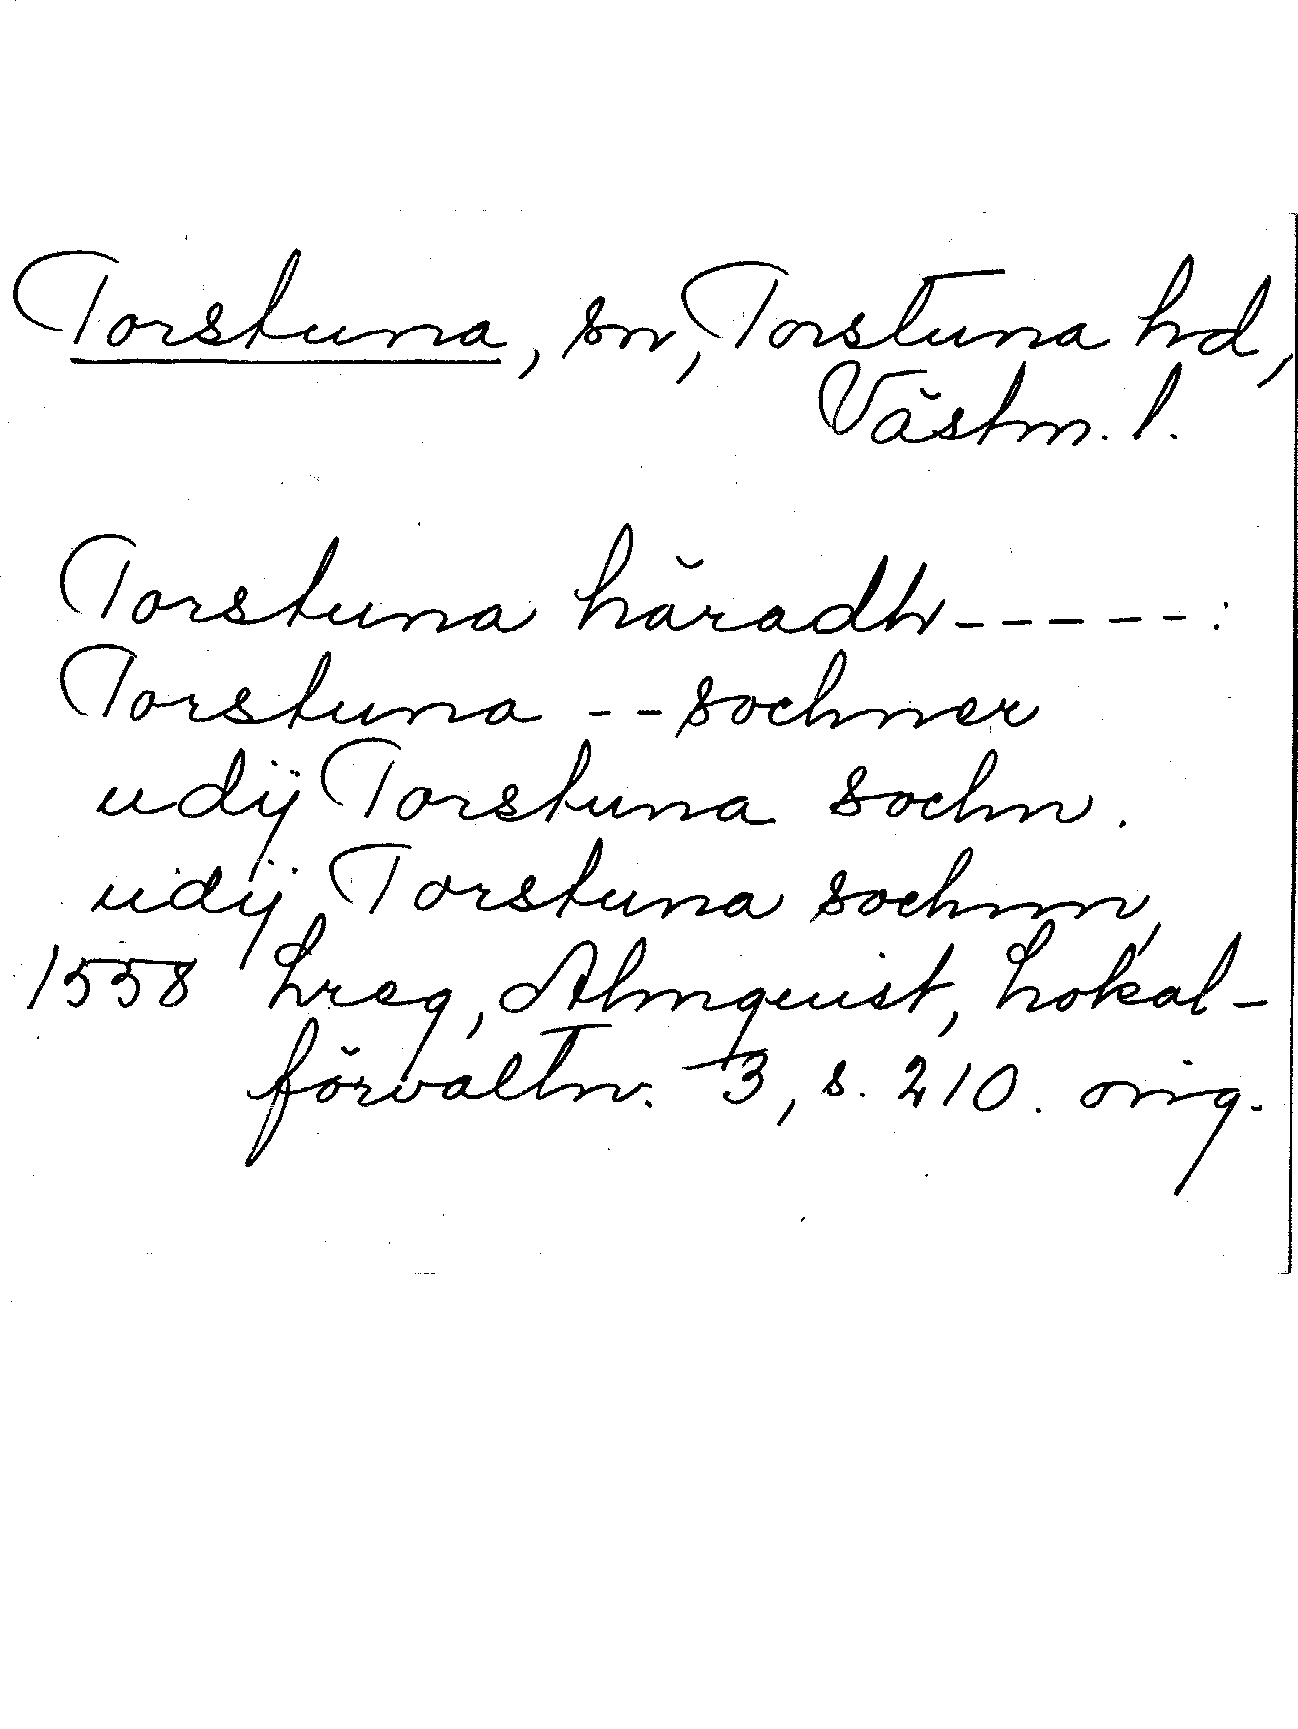 Torstuna, sn, Torstuna hd,
Västm. l.
Torstuna häradh-----:
Torstuna -- sochner
udij Torstuna sochn.
udij Torstuna sochnn,
1558 Lreg, Almquist, Lokal-
förvaltn. 3, s. 210. orig.